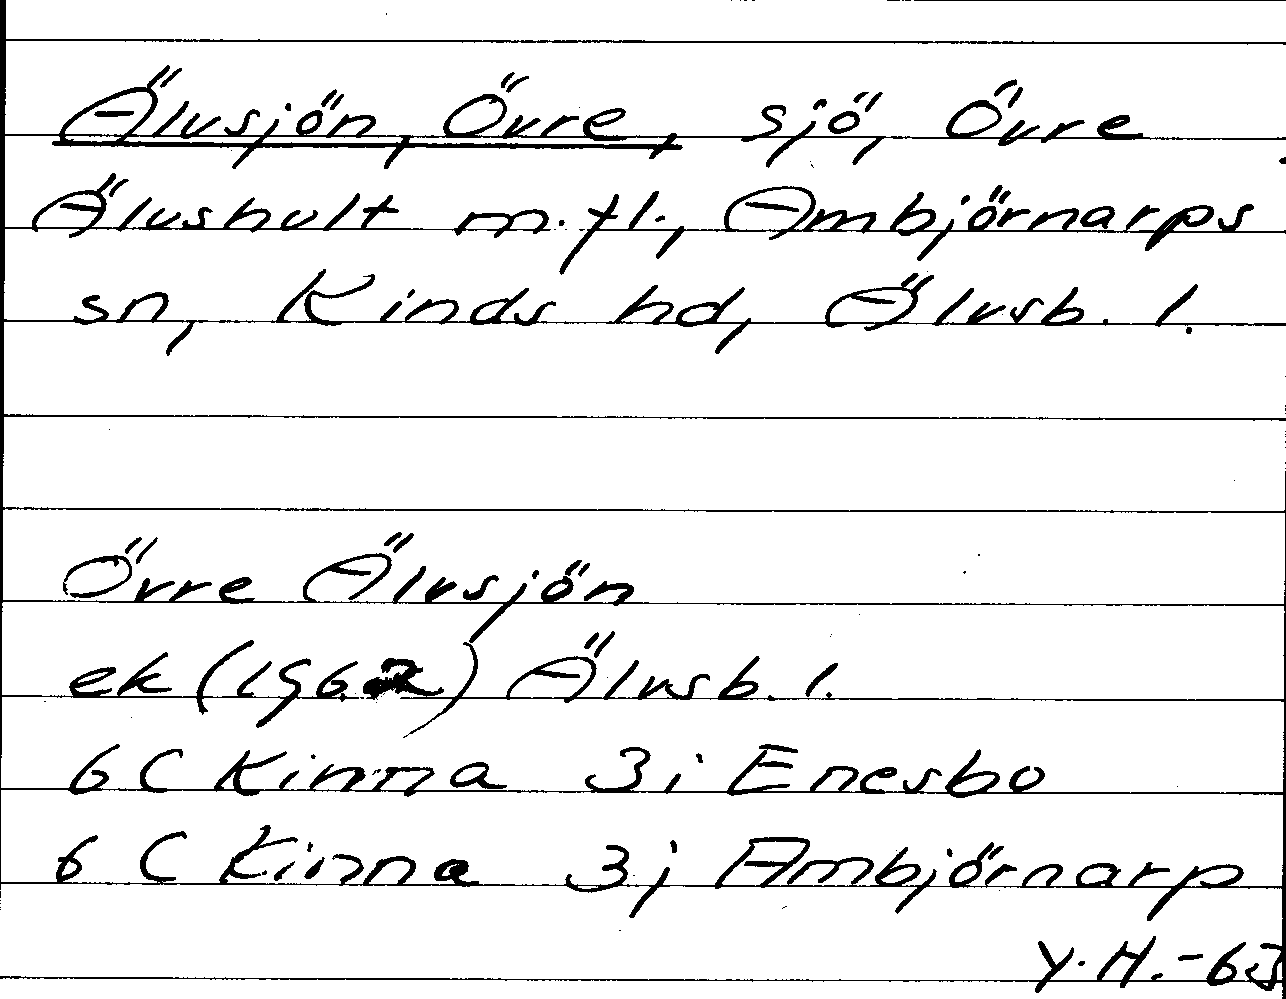 Älvsjön, Övre, sjö, Övre
Älvshult m.fl., Ambjörnarps
sn, Kinds hd, Älvsb. l.
Övre Älvsjön
ek (1962) Älvsb. l.
6 C Kinna 3 i Enesbo
6 C Kinna 3 j Ambjörnarp
Y.H.-65